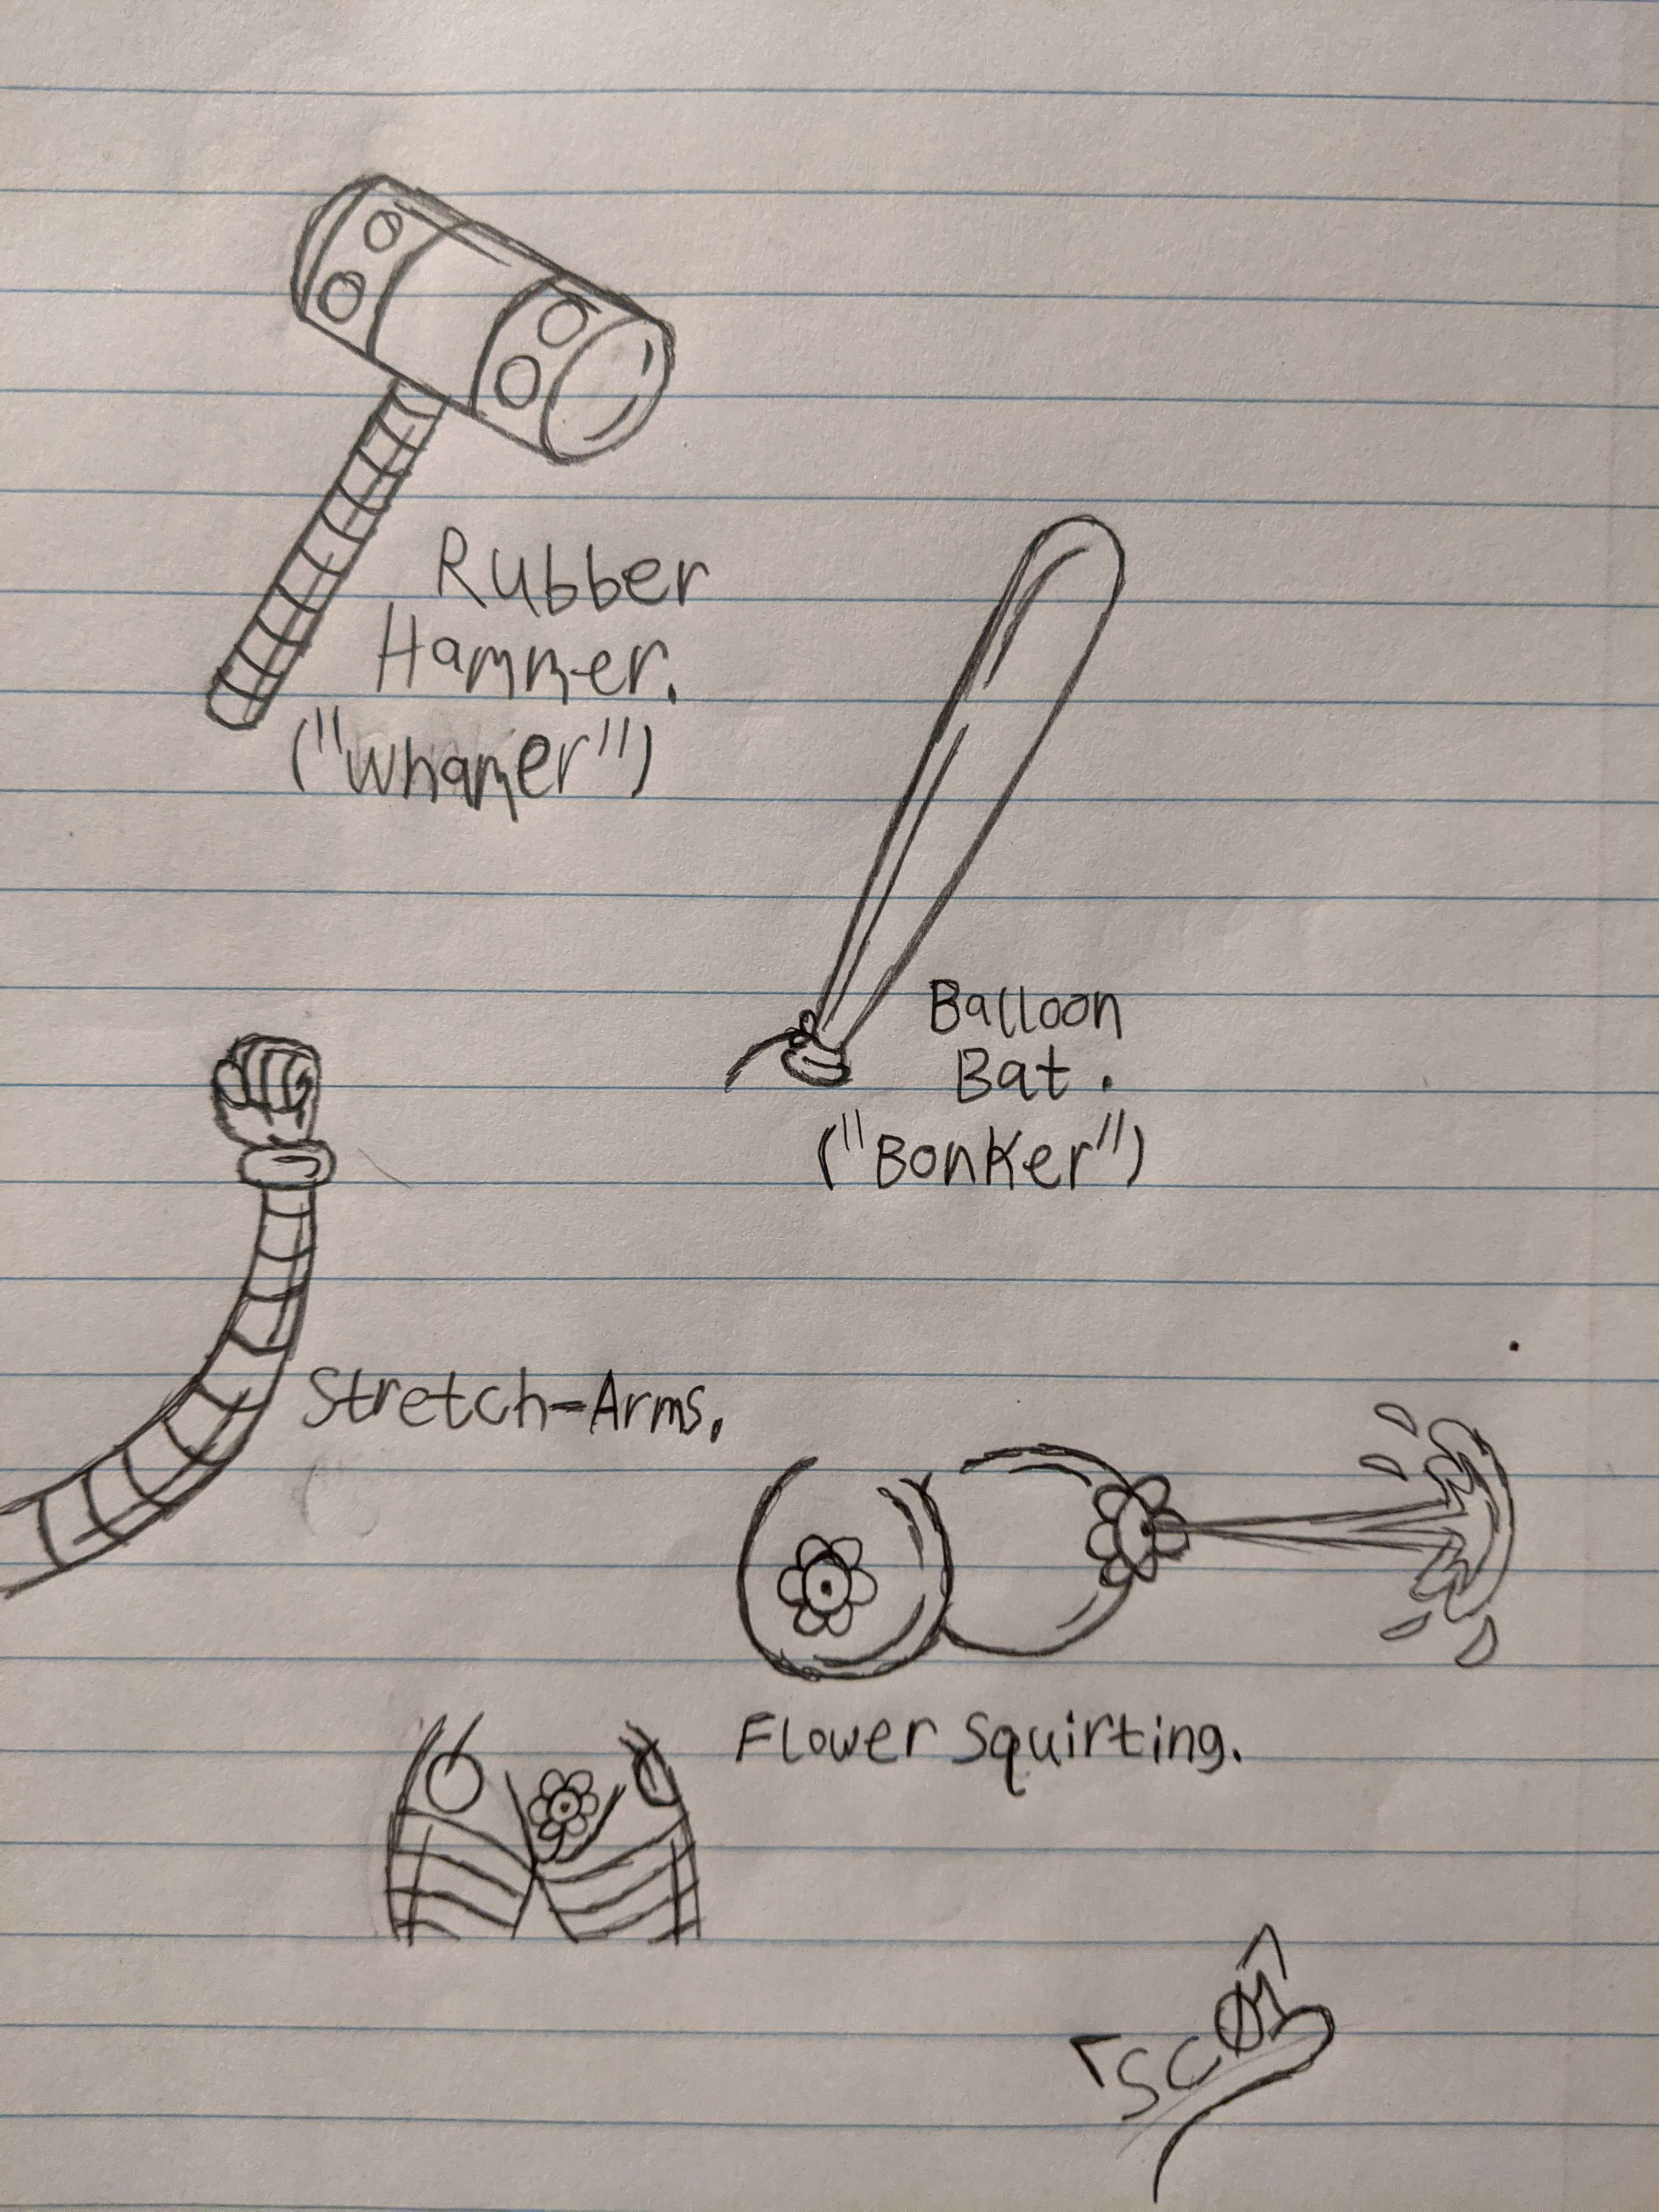 Rubber
Hammer.
("Whamer")
Balloon
Bat.
("Bonker")
Stretch-Arms.
Flower Squirting.